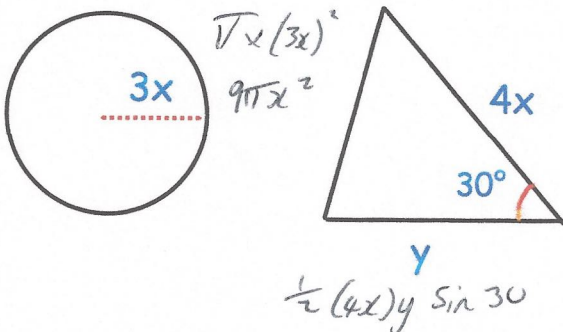 π x (3x)²
3x
9πx²
4x
30°
y
½ (4x) y Sin 30